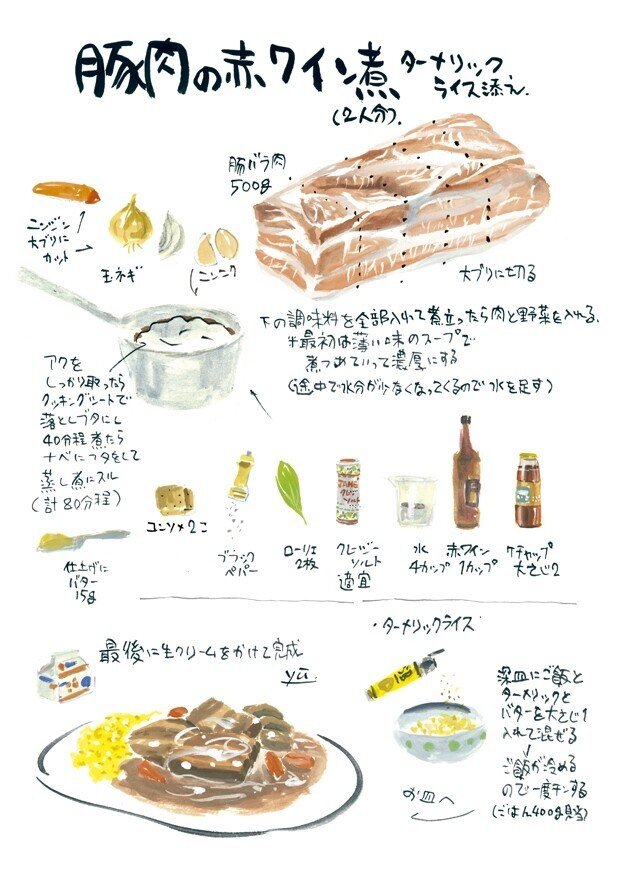 豚肉の赤ワイン煮
ターメリック
ライス添え
(2人分).
豚バラ肉
500g
ニンジン
大ブリに
カット
玉ネギ
ニンニク
大ブリに切る
下の調味料を全部入れて煮立ったら肉と野菜を入れる.
最初は薄い味のスープで
煮つめていって濃厚にする
(途中で水分が少なくなってくるので水を足す)
アクを
しっかり取ったら
クッキングシートで
落としブタにし
40分程煮たら
ナベにフタをして
蒸し煮にスル
(計80分程)
コンソメ2コ
ブラック
ペパー
ローリエ
2枚
クレージー
ソルト
適宜
水
4カップ
赤ワイン
1カップ
ケチャップ
大さじ2
仕上げに
バター
15g
最後に生クリームをかけて完成
・ターメリックライス
深皿にご飯と
ターメリックと
バターを大さじ1
入れて混ぜる
ご飯が冷める
ので一度チンする
(ごはん400g見当)
お皿へ